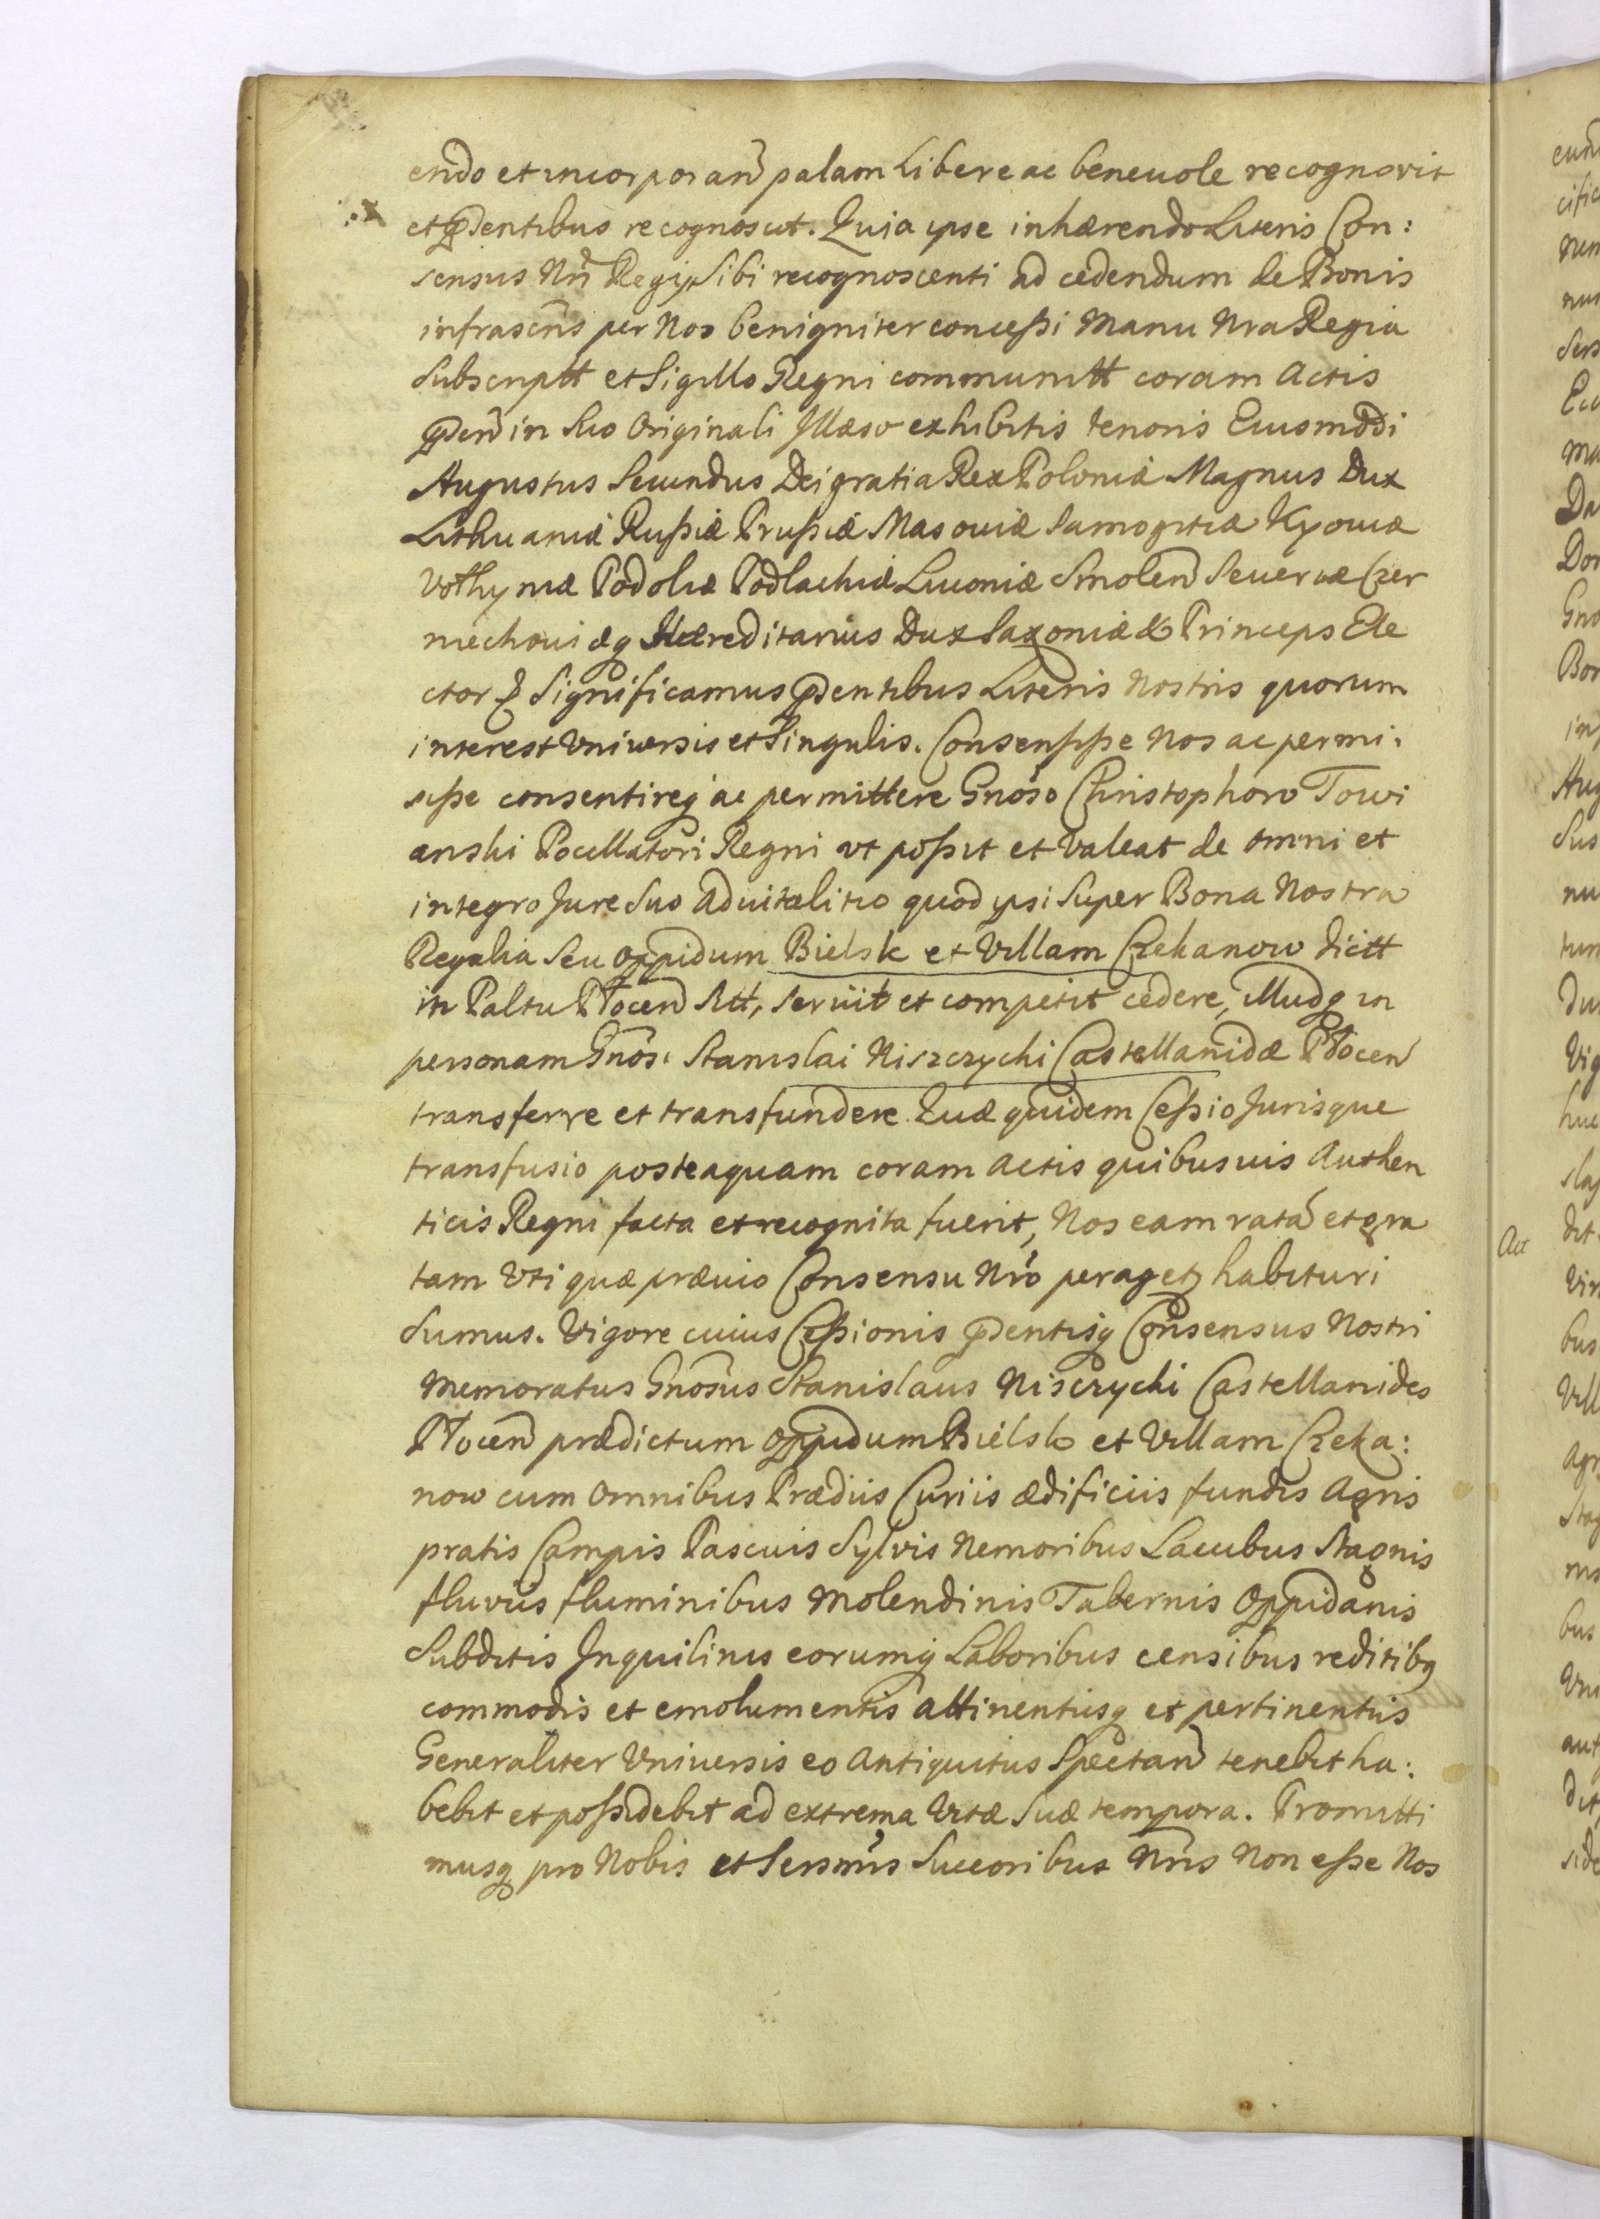 endo et incorporan̄ palam Libere ac beneuole recognovit
et p̄sentibus recognoscit. Quia ipse inhærendo Literis Con:
sensus Nr̄i Regij Sibi recognoscenti ad cedendum de Bonis
infrascr̄is per Nos benigniter conceßi Manu Nra Regia
Subscriptt et Sigillo Regni communitt coram Actis
p̄sen̄ in Suo Originali Illæso exhibitis tenoris Eiusmodi
Augustus Secundus Dei gratia Rex Poloniæ Magnus Dux
Lithuaniæ Rußiæ Prußiæ Masouiæ Samogitiæ Kyouiæ
Volhyniæ Podoliæ Podlachiæ Liuoniæ Smolen̄ Seueriæ Czer
niechouiæq Hæreditarius Dux Saxoniæ & Princeps Ele
ctor Significamus p̄sentibus Literis Nostris quorum
interest Vniuersis et Singulis. Consensiße Nos ac permi:
siße consentireq ac permittere Gnōso Christophoro Towi
anski Pocillatori Regni vt poßit et Valeat de omni et
integro Jure Suo aduitalitio quod ipsi Super Bona Nostra
Regalia Seu oppidum Bielsk et Villam Czekanow dictt
in Paltu Plocen̄ Sitt, seruit et competit cedere, illudq in
personam Gnōsi Stanislai Niszczycki Castellanidæ Plocen̄
transferre et transfundere Quæ quidem Ceßio Jurisque
transfusio posteaquam coram Actis quibusuis Authen
ticis Regni facta et recognita fuerit, Nos eam ratā et gra
tam Vti quæ præuio Consensu Nr̄o peragetz habituri
Sumus. Vigore cuius Ceßionis p̄sentisq Consensus Nostri
Memoratus Gnōsus Stanislaus Nisczycki Castellanides
Plocen̄ prædictum oppidum Bielsk et Villam Czeka:
now cum Omnibus Prædiis Curiis ædificiis fundis Agris
pratis Campis Pascuis Sylvis Nemoribus Lacubus Stagnis
fluviis fluminibus Molendinis Tabernis Oppidanis
Subditis Inquilinis eorumq Laboribus censibus reditibq
commodis et emolumentis attinentiisq et pertinentiis
Generaliter Vniuersis eo Antiquitus Spectan̄ tenebit ha:
bebit et poßidebit ad extrema Vitæ Suæ tempora. Promitti
musq pro Nobis et Sersm̄is Succoribus Nr̄is Non eße Nos